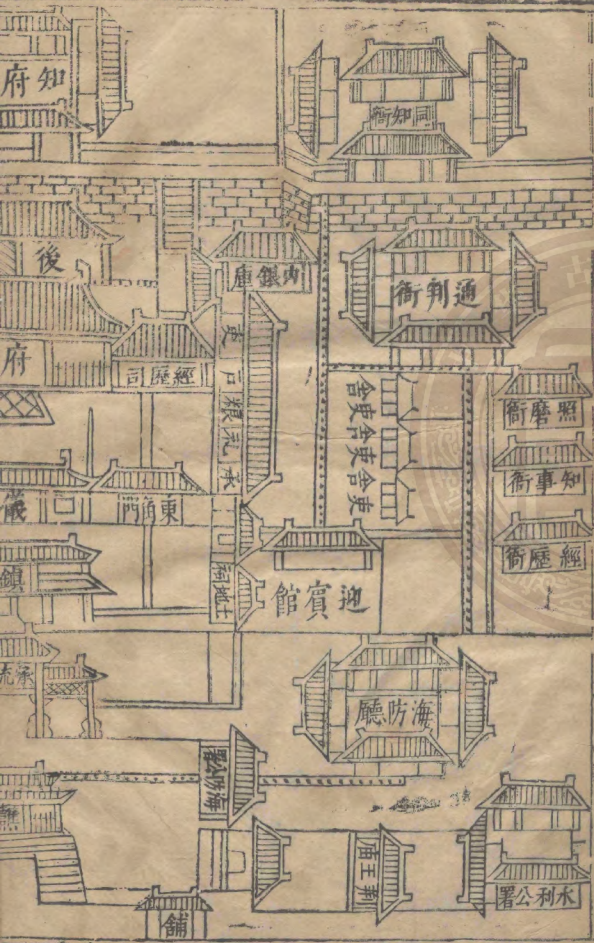 知府
同知衙
後
內銀庫
通判衙
府
經歷司
吏戶糧元承
吏舍吏舍吏舍
照磨衙
知事衙
經歷衙
儀
東角門
鎮
土地祠
迎賓館
承流
海防廳
海防公署
譙
荆王庙
水利公署
舖